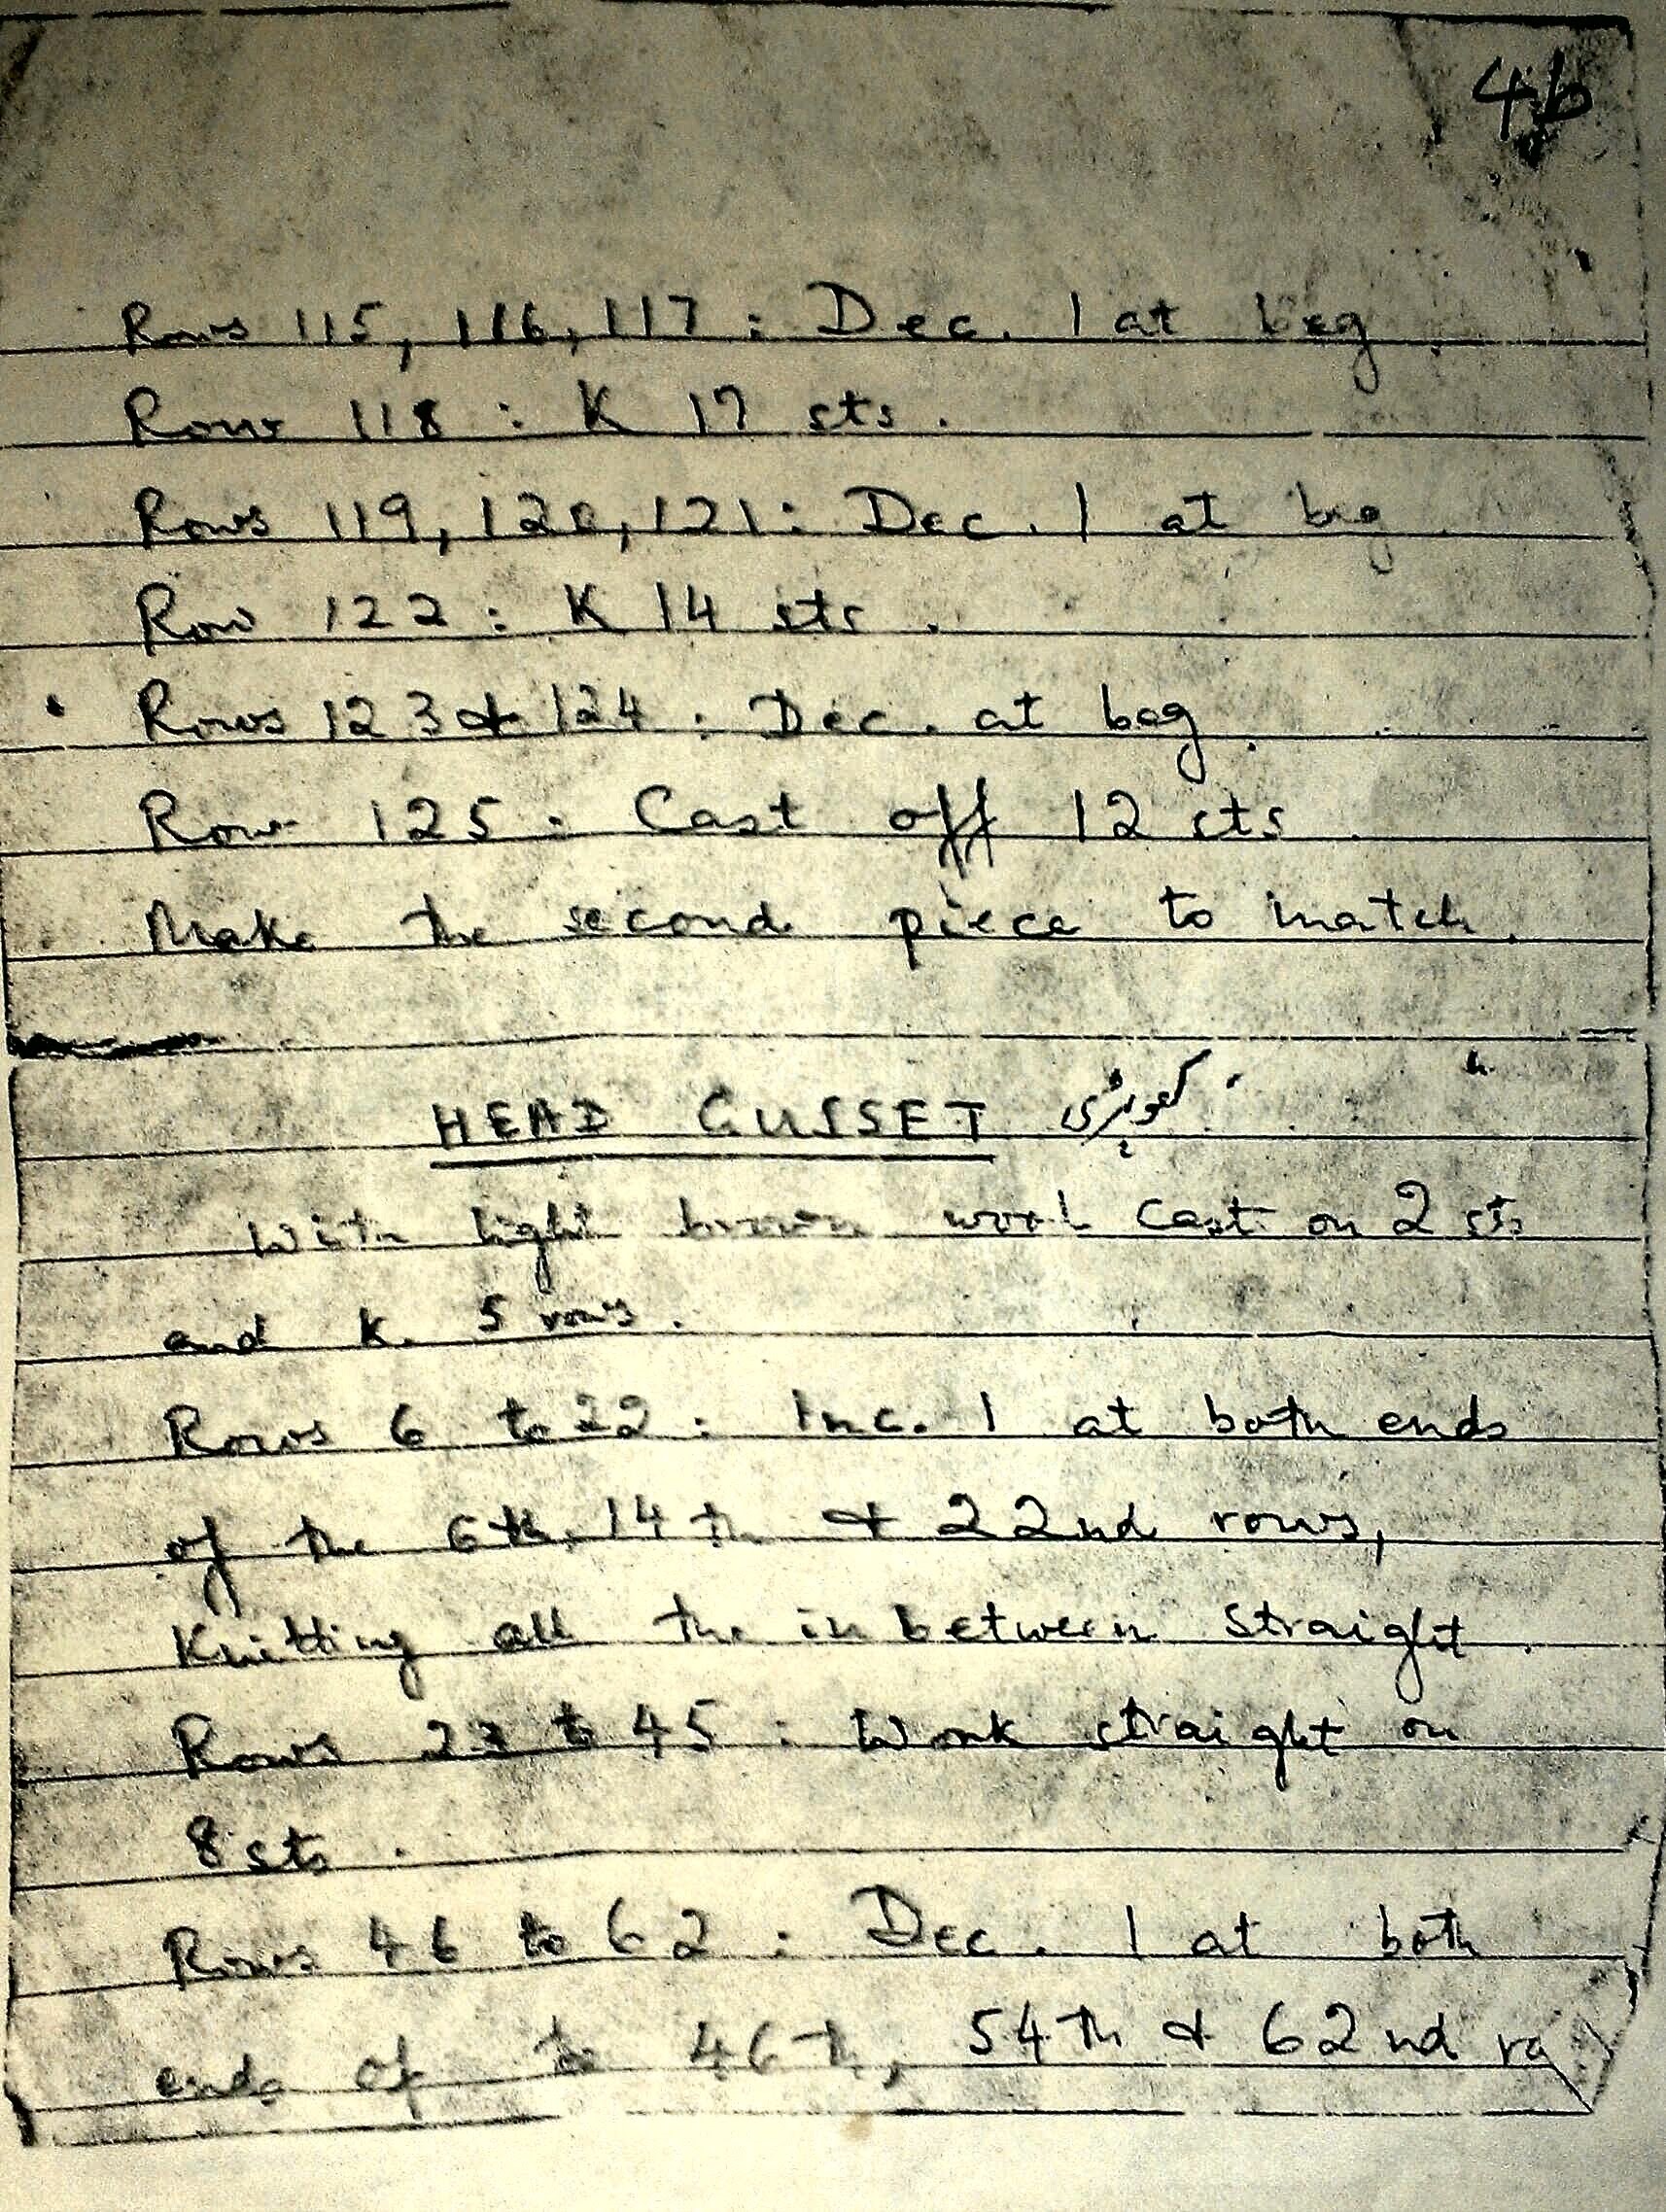 4b
Rows 115, 116, 117 : Dec. 1 at beg.
Row 118 : K 17 sts.
Rows 119, 120, 121 : Dec. 1 at beg.
Row 122 : K 14 sts.
Rows 123 & 124 : Dec. at beg.
Row 125 : Cast off 12 sts.
Make the second piece to match.
HEAD GUSSET کھوپڑی
With light brown wool cast on 2 sts
and K. 5 rows.
Rows 6 to 22 : Inc. 1 at both ends
of the 6th, 14th & 22nd rows,
Knitting all the in between straight.
Rows 23 to 45 : Work straight on
8 sts.
Rows 46 to 62 : Dec. 1 at both
ends of to 46th, 54th & 62nd ro